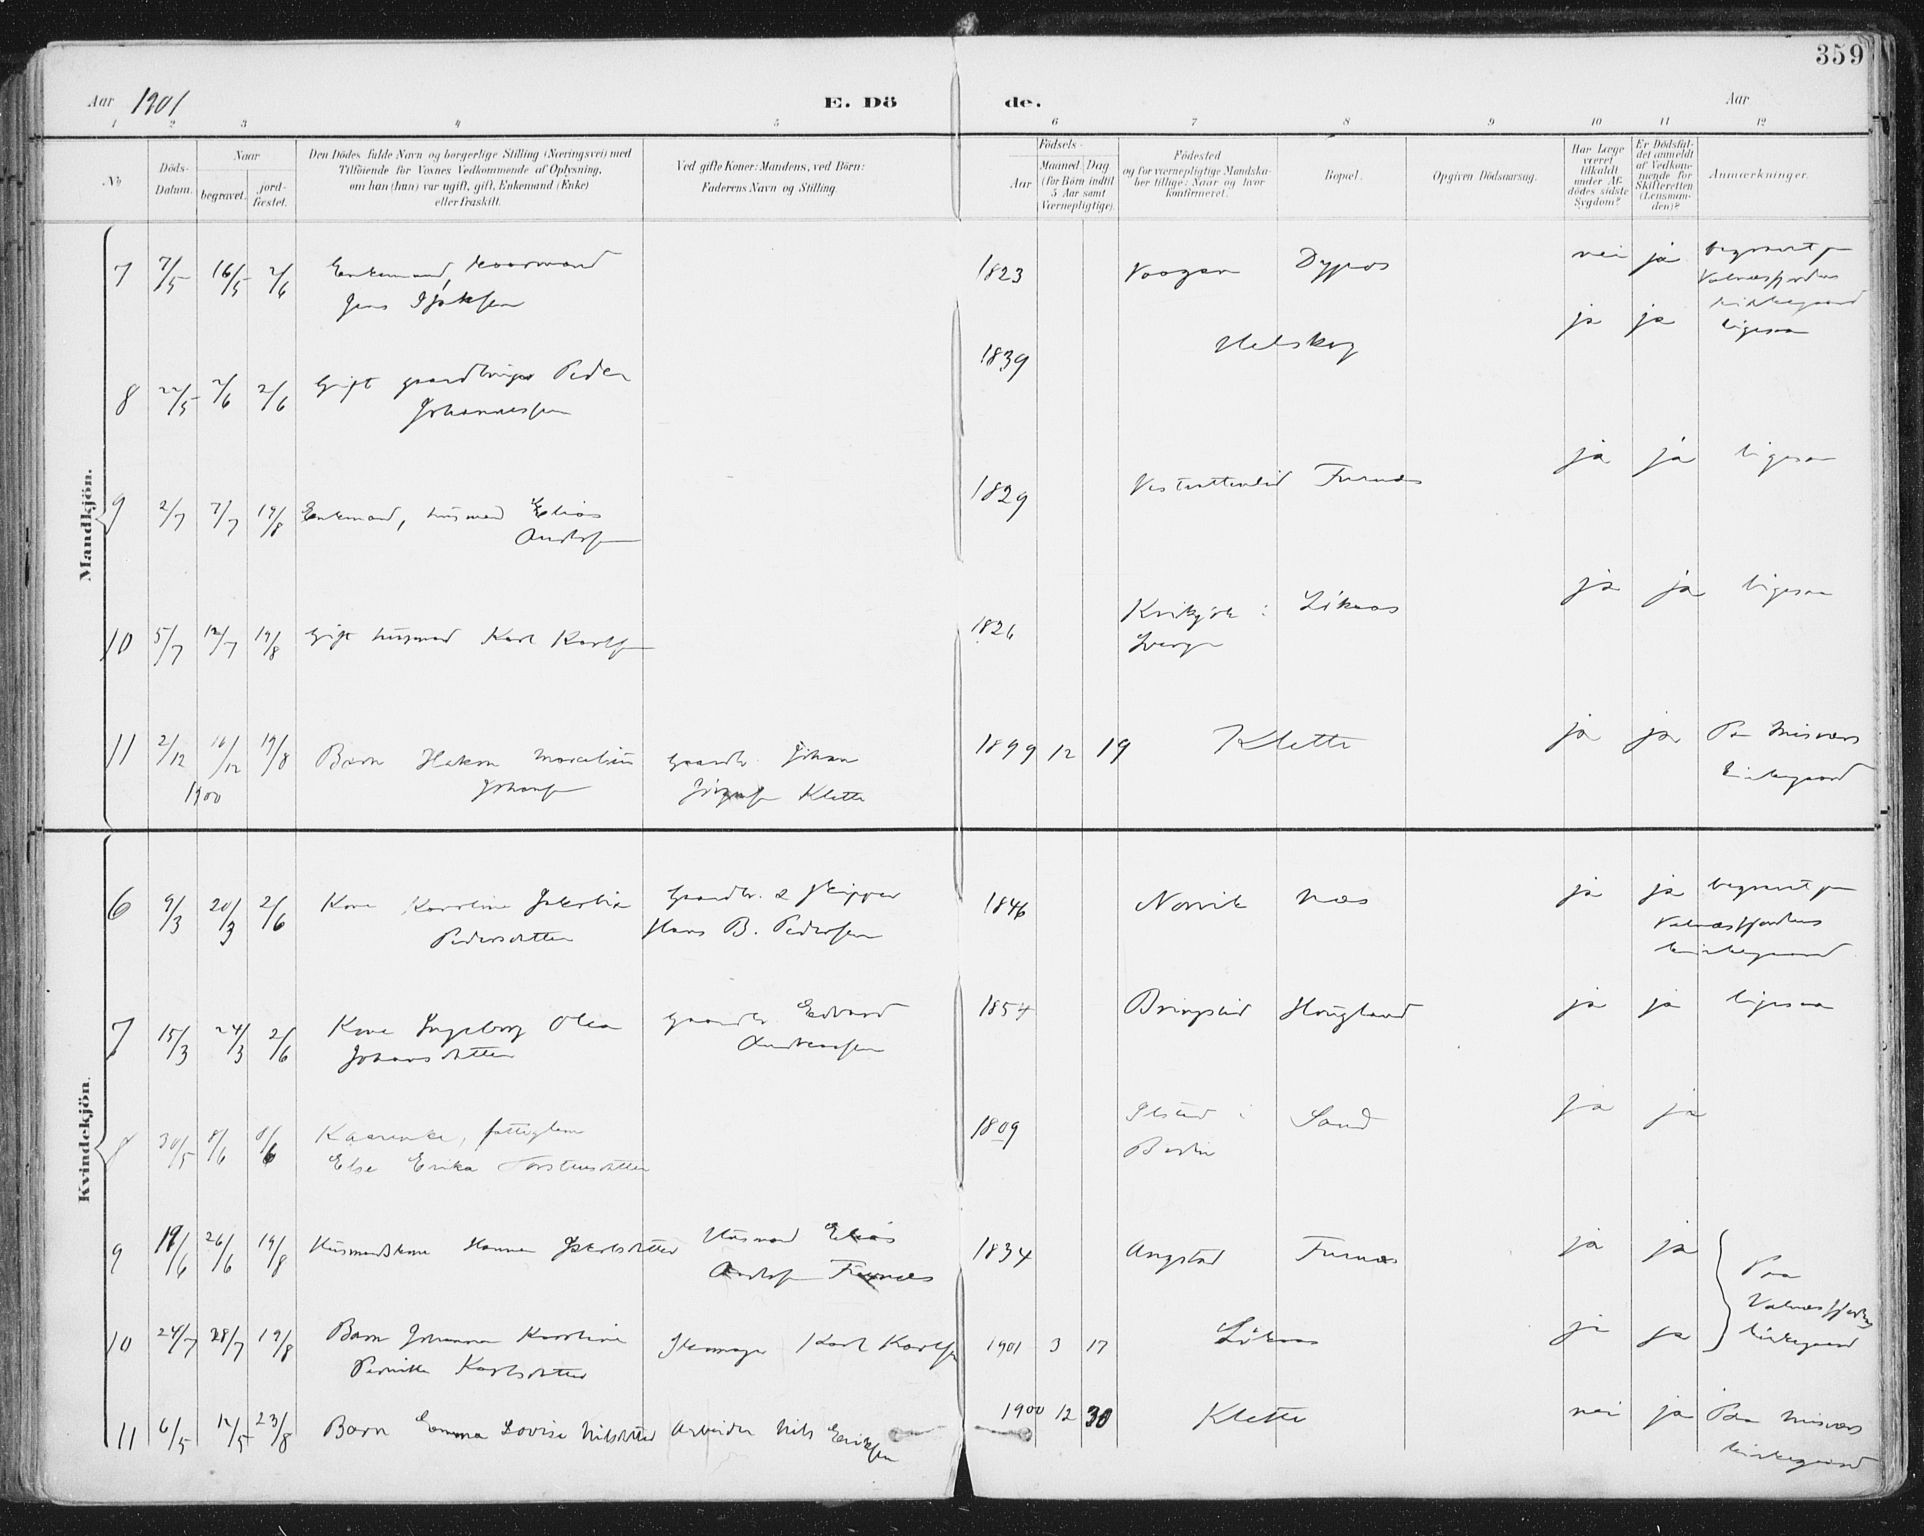 359
Aar 1901 E. Dö de. Aar
1 2 3 4 5 6 7 8 9 10 11 12
No
Döds-Datum.
Naar
begravet.
jord-fæstet.
Den Dödes fulde Navn og borgerlige Stilling (Næringsvei) med
Tilföiende for Voxnes Vedkommende af Oplysning,
om han (hun) var ugift, gift, Enkemand (Enke)
eller fraskilt.
Ved gifte Koner: Mandens, ved Börn:
Faderens Navn og Stilling.
Födsels-
Aar
Maaned Dag
(for Börn indtil
5 Aar samt
Værnepligtige).
Födested
og for værnepligtige Mandska-
ber tillige: Naar og hvor
konfirmeret.
Bopæl.
Opgiven Dödsaarsag.
Har Læge
været
tilkaldt
under Af-
dödes sidste
Sygdom?
Er Dödsfal-
det anmeldt
af Vedkom-
mende for
Skifteretten
(Lensman-
den)?
Anmærkninger.
Mandkjön.
7 7/5 16/5 2/6 Enkemand, 1823 nei ja begravet paa
Jens Valnæsfjordens
kirkegaard
8 22/5 2/6 2/6 Gift gaardbruger Peder 1839 ja ja ligesaa
Johannessen
9 2/7 7/7 19/8 Enkemand, husmand Elias 1829 Furnæs ja ja ligesaa
10 5/7 12/7 19/8 Gift husmand Karl Karlsen 1826 ja ja ligesaa
11 2/12 16/12 19/8 Barn Hakon Marcelius Gaardbr. Johan 1899 12 19 Klette ja ja Paa Misvær
1900 Johansen Klette kirkegaard
Kvindekjön.
6 9/3 20/3 2/6 Kone Karoline Jakobia Gaardbr. & skipper 1846 Norvik Næs ja ja begravet paa
Pedersdatter Hans B. Pedersen Valnæsfjordens
kirkegaard
7 15/3 24/3 2/6 Kone Ingeborg Olea Gaardbr. Edvard 1854 Bringslid Hougland ja ja ligesaa
Johansdatter Andreassen
8 30/5 8/6 8/6 fattiglem 1809 Ilstad i Sand ja ja
Else Erika Torstensdatter
9 19/6 26/6 19/8 Husmandskone Hanna Jakobsdatter Husmand Elias 1834 Angstad Furnæs ja ja Paa
Furnæs Valnæsfjordens
10 24/7 28/7 19/8 Barn Johanna Karoline Karl Karlsen 1901 3 17 ja ja kirkegaard
Pernille Karlsdatter
11 6/5 12/5 23/8 Barn Emma Lovise Nilsdatter Arbeider Nils Eriksen 1900 12 30 Klette nei ja Paa Misvær
kirkegaard